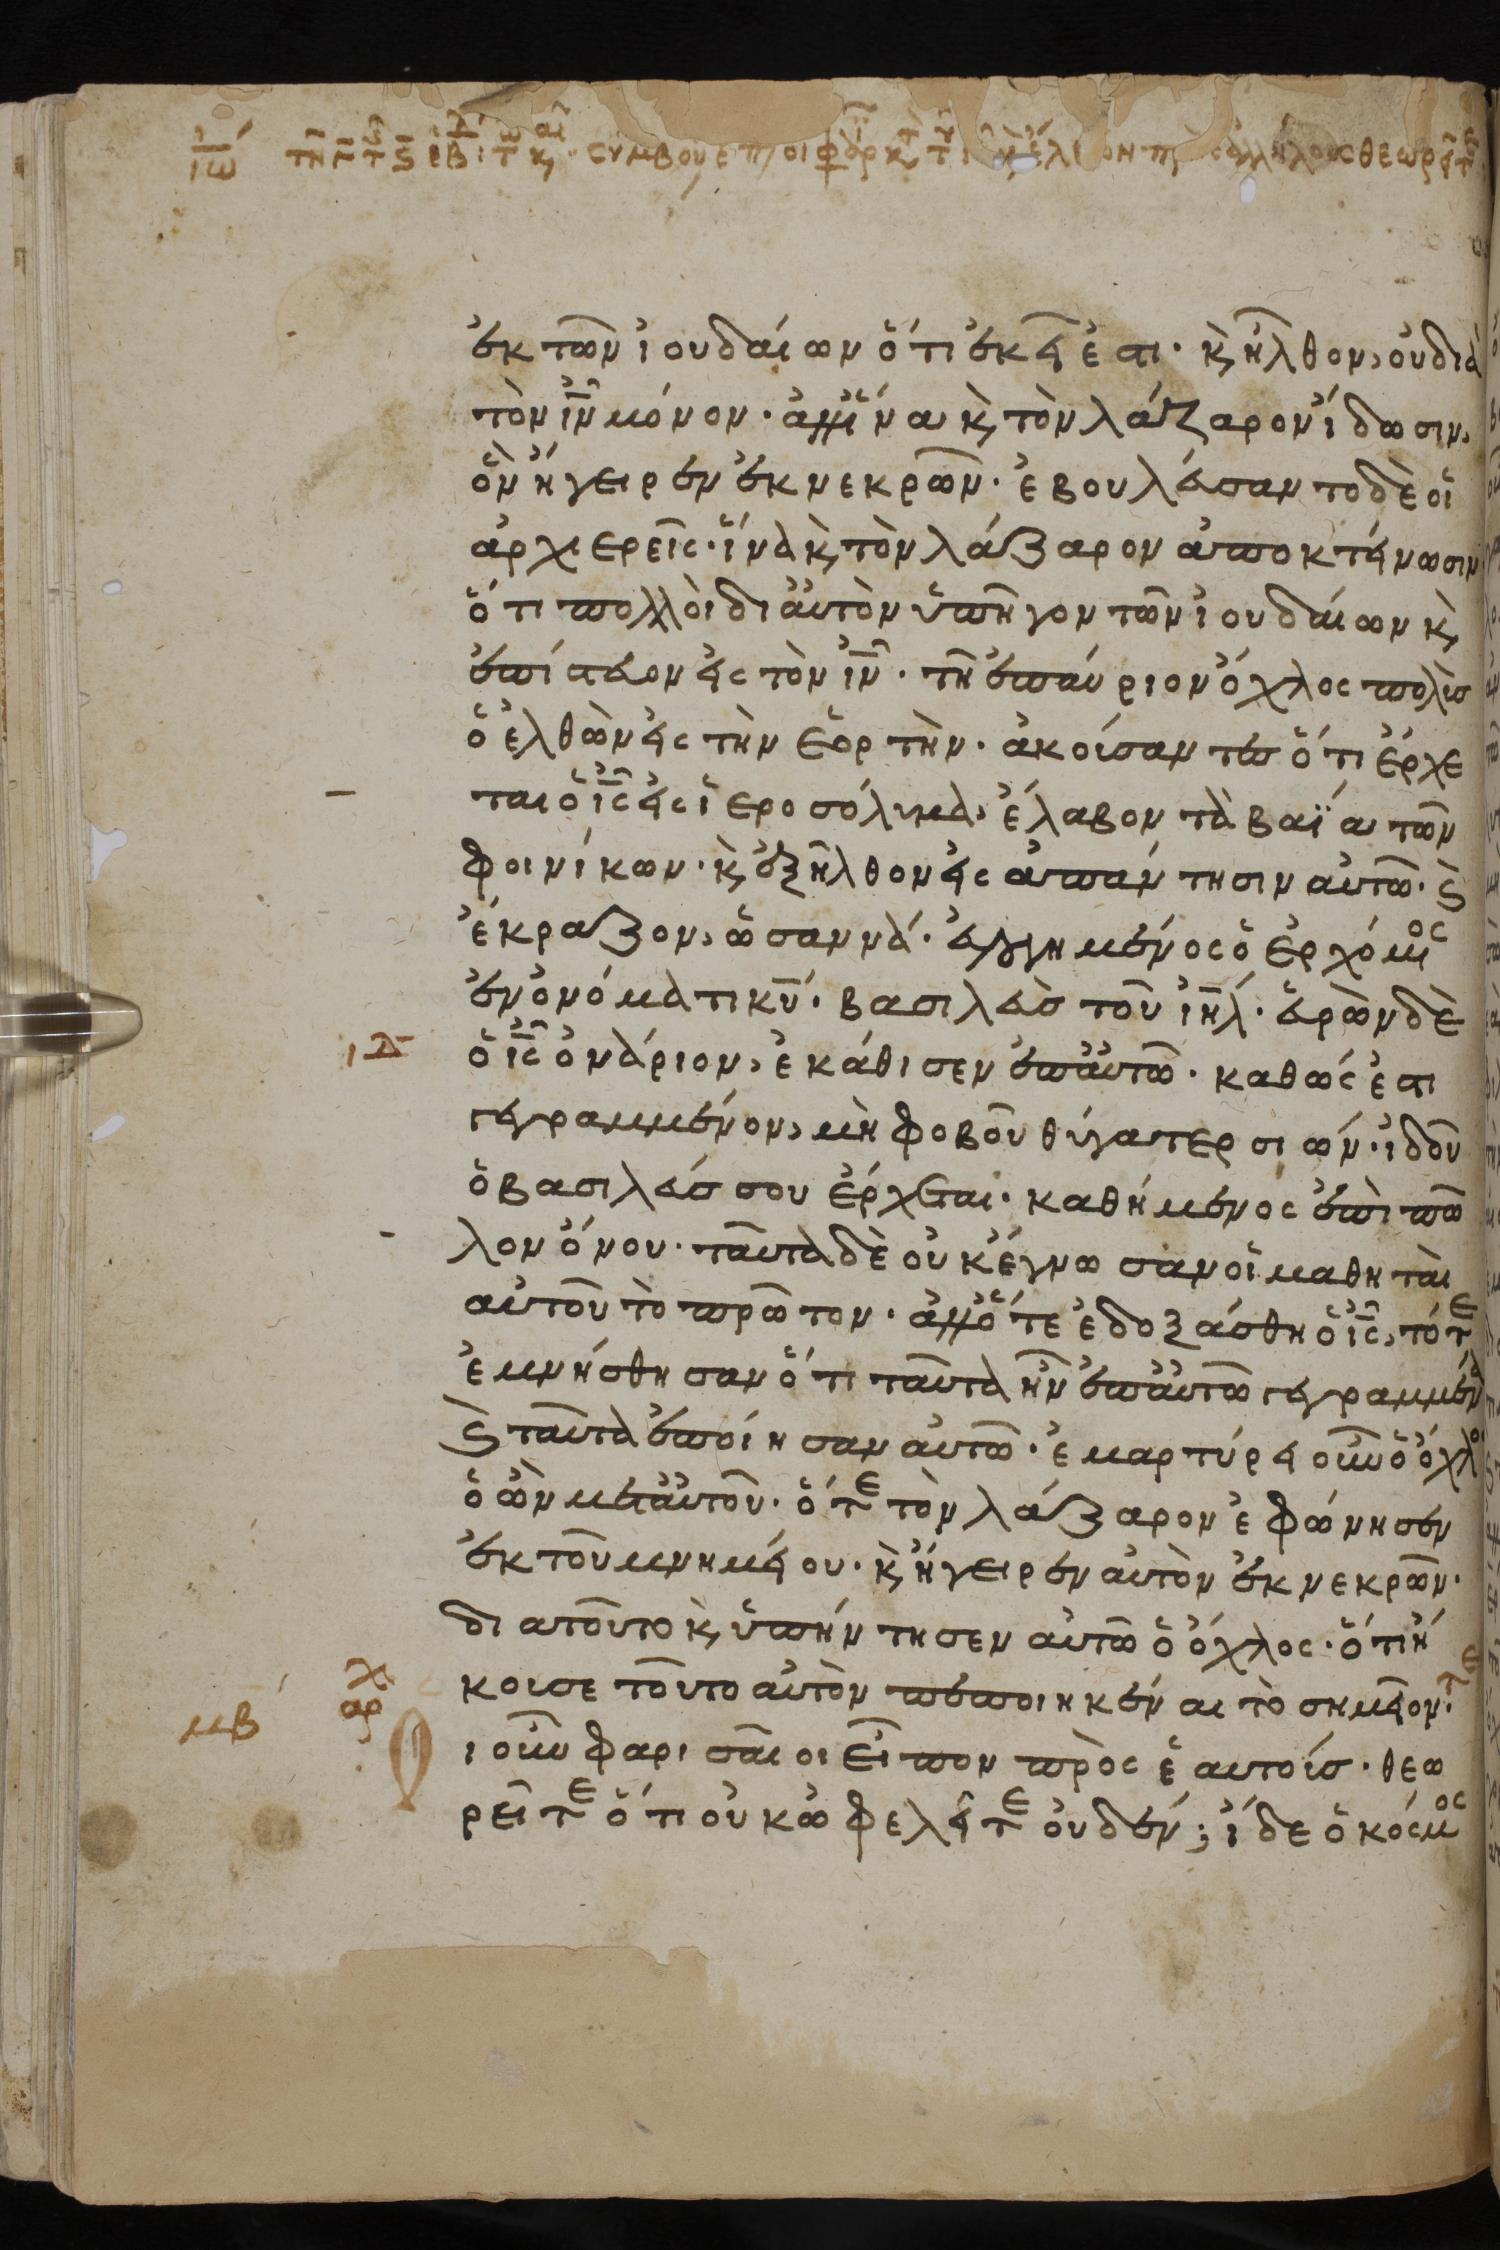 ἐκ τῶν ἰουδαίων ὅτι ἐκεῖ ἐστι· κ̀ ἦλθον, οὐ διὰ
τὸν ἰ̅ν̅ μόνον· ἀλλ' ἵνα κ̀ τὸν λάζαρον ἴδωσιν,
ὃν ἤγειρεν ἐκ νεκρῶν· ἐβουλεύσαντο δὲ οἱ
ἀρχιερεῖς· ἵνα κ̀ τὸν λάζαρον ἀποκτείνωσιν
ὅτι πολλοὶ δι αὐτὸν ὑπῆγον τῶν ἰουδαίων κ̀
ἐπίστευον εἰς τὸν ἰ̅ν̅· τῆ ἐπαύριον ὄχλος πολὺς
ὁ ἐλθὼν εἰς τὴν ἑορτὴν· ἀκούσαντες ὅτι ἔρχε
ται ὁ ἰ̅ς̅ εἰς ἱεροσόλυμα, ἔλαβον τὰ βαΐα τῶν
φοινίκων· κ̀ ἐξῆλθον εἰς ἀπάντησιν αὐτῶ· ϛ̀
ἔκραζον, ὡσαννά· εὐλογημένος ὁ ἐρχόμος
ἐν ὀνόματι κ̅υ̅· βασιλεὺς τοῦ ἰ̅η̅λ̅· εὑρὼν δὲ
ὁ ἰ̅ς̅ ὀνάριον, ἐκάθισεν ἐπ αὐτῶ· καθώς ἐστι
γεγραμμένον, μὴ φοβοῦ θύγατερ σιών· ἰδοῦ
ὁ βασιλεύς σου ἔρχεται· καθήμενος ἐπὶ πῶ
λον ὄνου· ταῦτα δὲ οὐκ ἔγνωσαν οἱ μαθηταὶ
αὐτοῦ τὸ πρῶτον· ἀλλ' ὅτε ἐδοξάσθη ὁ ἰ̅ς̅, τότε
ἐμνήσθησαν ὅτι ταῦτα ἦν ἐπ αὐτῶ γεγραμμένα
ϛ̀ ταῦτα ἐποίησαν αὐτῶ· ἐμαρτύρει οὖν ὁ ὄχλος
ὁ ὢν μετ αὐτοῦ· ὅτε τὸν λάζαρον ἐφώνησεν
ἐκ τοῦ μνημείου· κ̀ ἤγειρεν αὐτὸν ἐκ νεκρῶν·
διατοῦτο κ̀ ὑπήντησεν αὐτῶ ὁ ὄχλος· ὅτι ἤ
κουσε τοῦτο αὐτὸν πεποιηκέναι τὸ σημεῖον·
ι οὖν φαρισαῖοι εἶπον πρὸς ἑαυτούς· θεω
ρεῖτε ὅτι οὐκ ὠφελεῖτε οὐδέν; ἴδε ὁ κόσμος
ιδ
μβ
αρχ
Ο